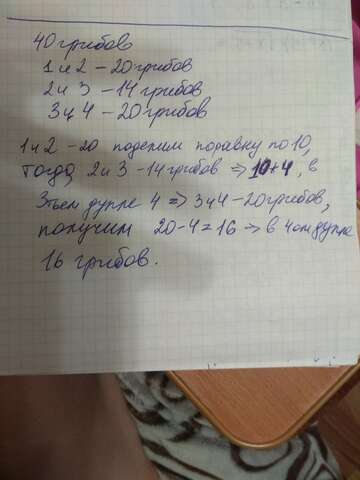 40 грибов
1 и 2 – 20 грибов
2 и 3 – 14 грибов
3 и 4 – 20 грибов
1 и 2 – 20 поделим поравну по 10,
тогда, 2 и 3 – 14 грибов => 10+4, в
3ьем дупле 4 => 3 и 4 – 20 грибов,
получим 20-4=16 -> в 4ом дупле
16 грибов.